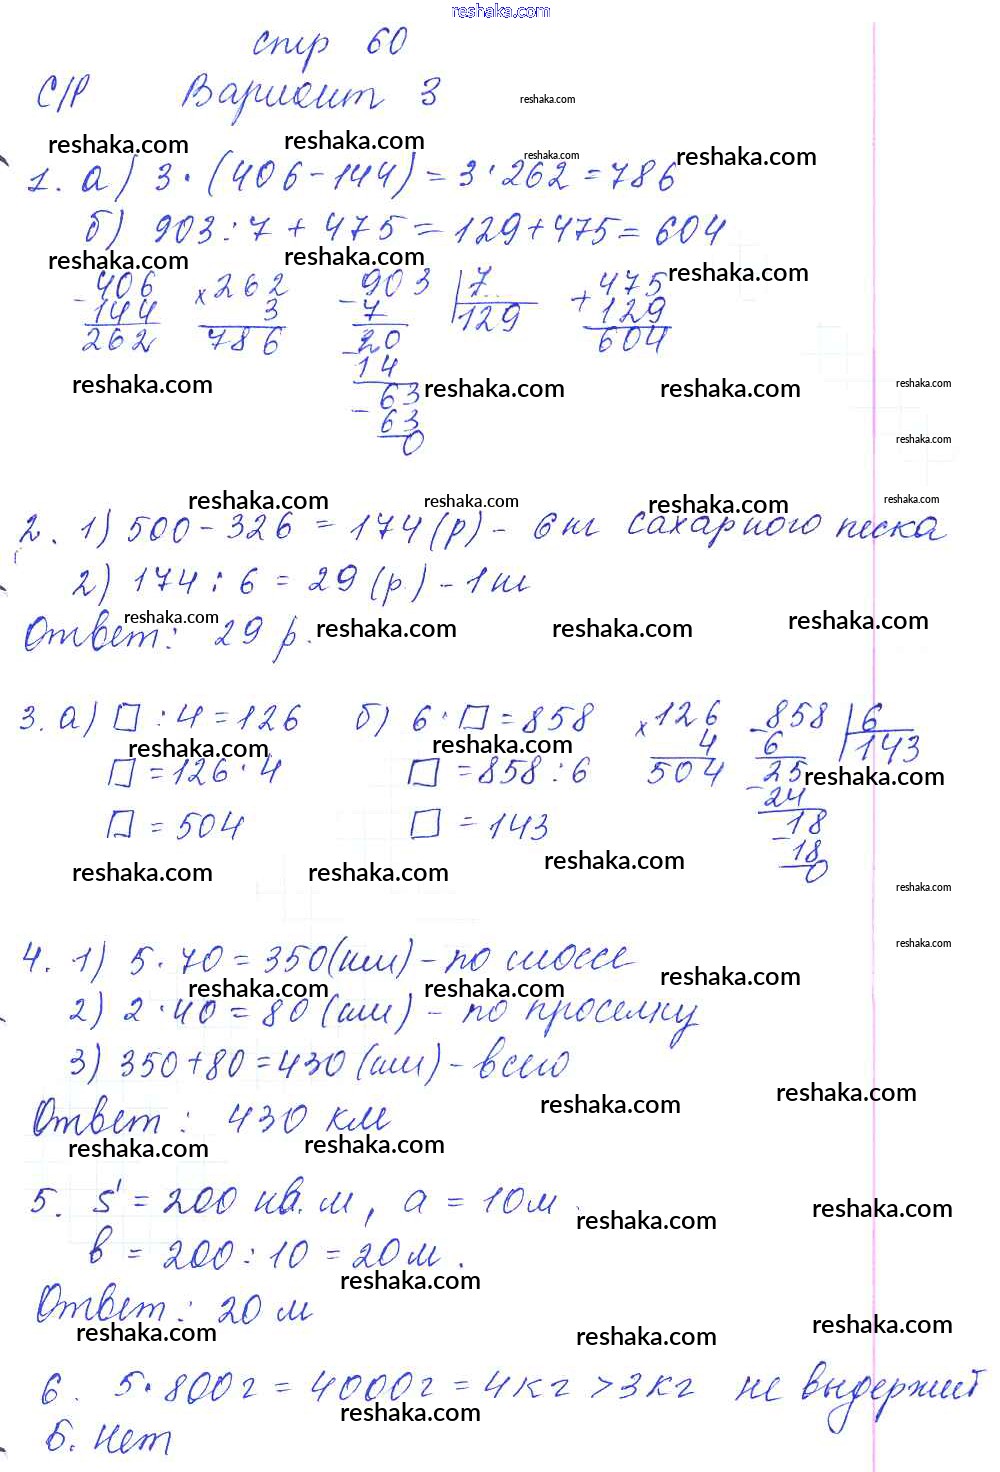 reshaka.com
стр 60
С/Р Вариант 3
reshaka.com
reshaka.com reshaka.com reshaka.com reshaka.com
1. а) 3 · (406 - 144) = 3 · 262 = 786
б) 903 : 7 + 475 = 129 + 475 = 604
reshaka.com reshaka.com reshaka.com
- 406 × 262 - 903 | 7 + 475
144 3 7 129 129
262 786 20 604
- 14
63
- 63
0
reshaka.com reshaka.com reshaka.com reshaka.com
reshaka.com
reshaka.com reshaka.com reshaka.com reshaka.com
2. 1) 500 - 326 = 174 (р) - 6 кг сахарного песка
2) 174 : 6 = 29 (р.) - 1 кг
reshaka.com reshaka.com reshaka.com reshaka.com
Ответ: 29 р.
3. а) □ : 4 = 126 б) 6 · □ = 858 × 126 - 858 | 6
4 6 143
reshaka.com reshaka.com reshaka.com
□ = 126 · 4 □ = 858 : 6 504 25
- 24
□ = 504 □ = 143 18
- 18
0
reshaka.com reshaka.com reshaka.com reshaka.com
reshaka.com
4. 1) 5 · 70 = 350 (км) - по шоссе
reshaka.com reshaka.com reshaka.com
2) 2 · 40 = 80 (км) - по проселку
3) 350 + 80 = 430 (км) - всего
reshaka.com reshaka.com
Ответ: 430 км
reshaka.com reshaka.com
5. S = 200 кв. м, а = 10 м.
reshaka.com reshaka.com
в = 200 : 10 = 20 м.
reshaka.com
Ответ: 20 м
reshaka.com reshaka.com reshaka.com
6. 5 · 800 г = 4000 г = 4 кг > 3 кг не выдержит
reshaka.com
Б. Нет